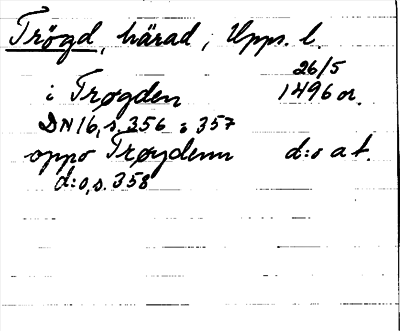 Trögd, härad, Upps. l.
26/5
i Trøgden 1496 or.
DN 16, s. 356 o 357
oppo Trøydenn d:o a t.
d:o, s. 358